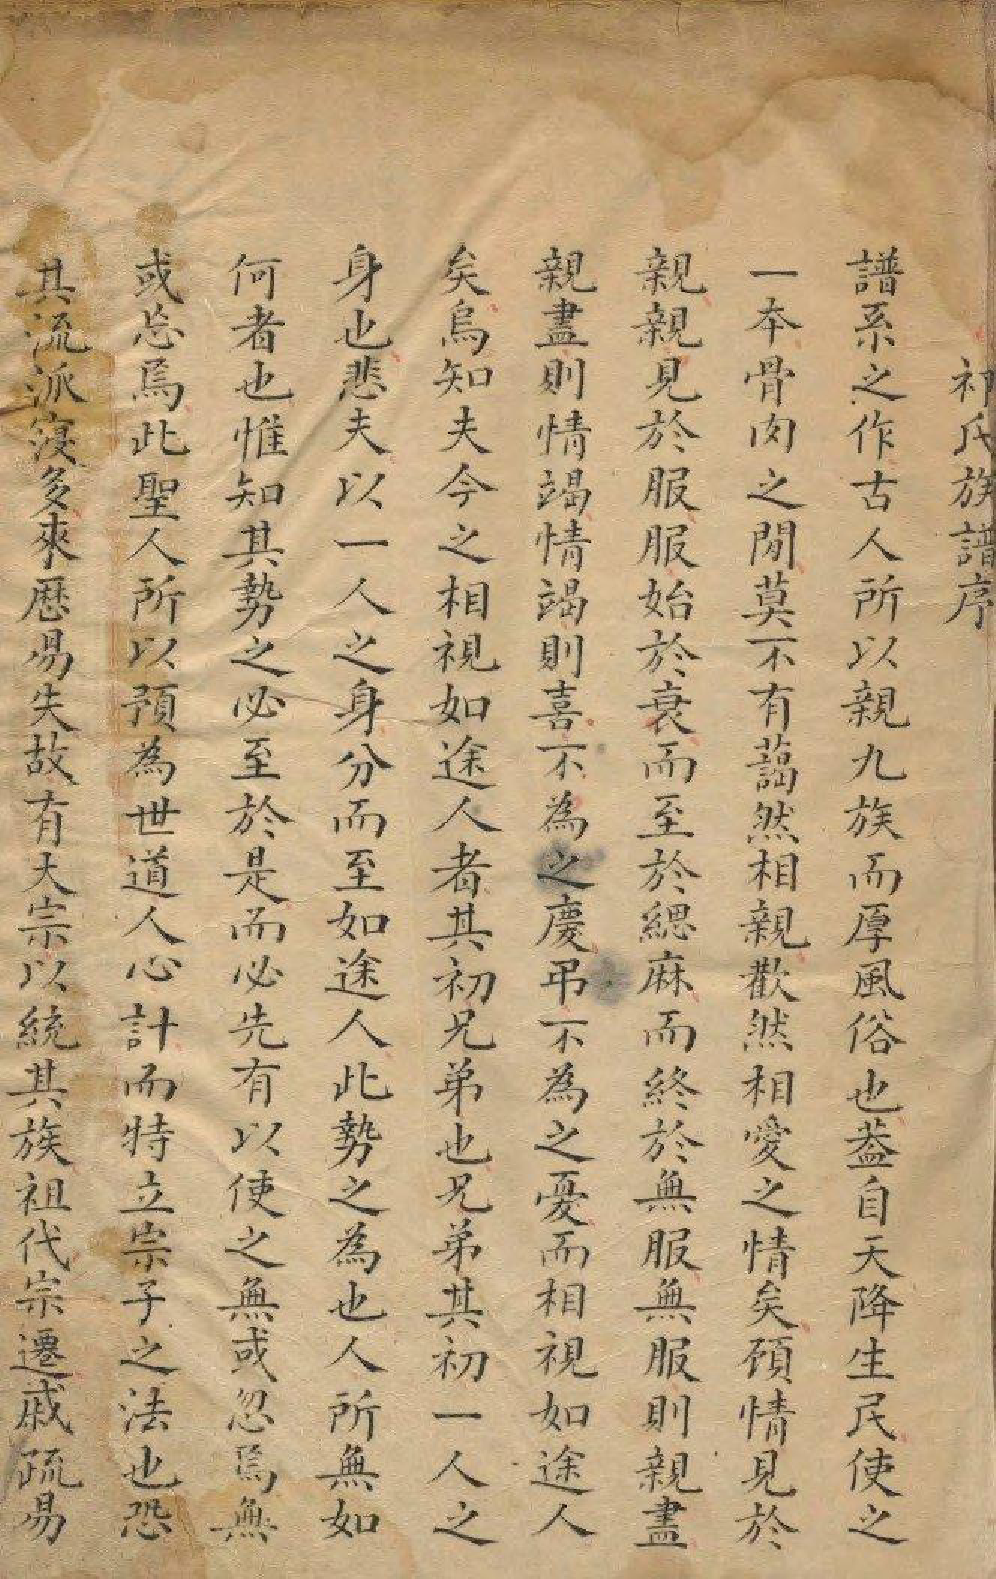 祁氏族譜序
譜系之作古人所以親九族而厚風俗也葢自天降生民使之
一本骨肉之閒莫不有藹然相親歡然相愛之情矣顧情見於
親親見於服服始於衰而至於緦麻而終於無服無服則親盡
親盡則情竭情竭則喜不為之慶弔不為之憂而相視如途人
矣烏知夫今之相視如途人者其初兄弟也兄弟其初一人之
身也悲夫以一人之身分而至如途人此勢之為也人所無如
何者也惟知其勢之必至於是而必先有以使之無或忽焉無
或忘焉此聖人所以預為世道人心計而特立宗子之法也恐
其流派寖多來歷易失故有大宗以統其族祖代宗遷戚疏易